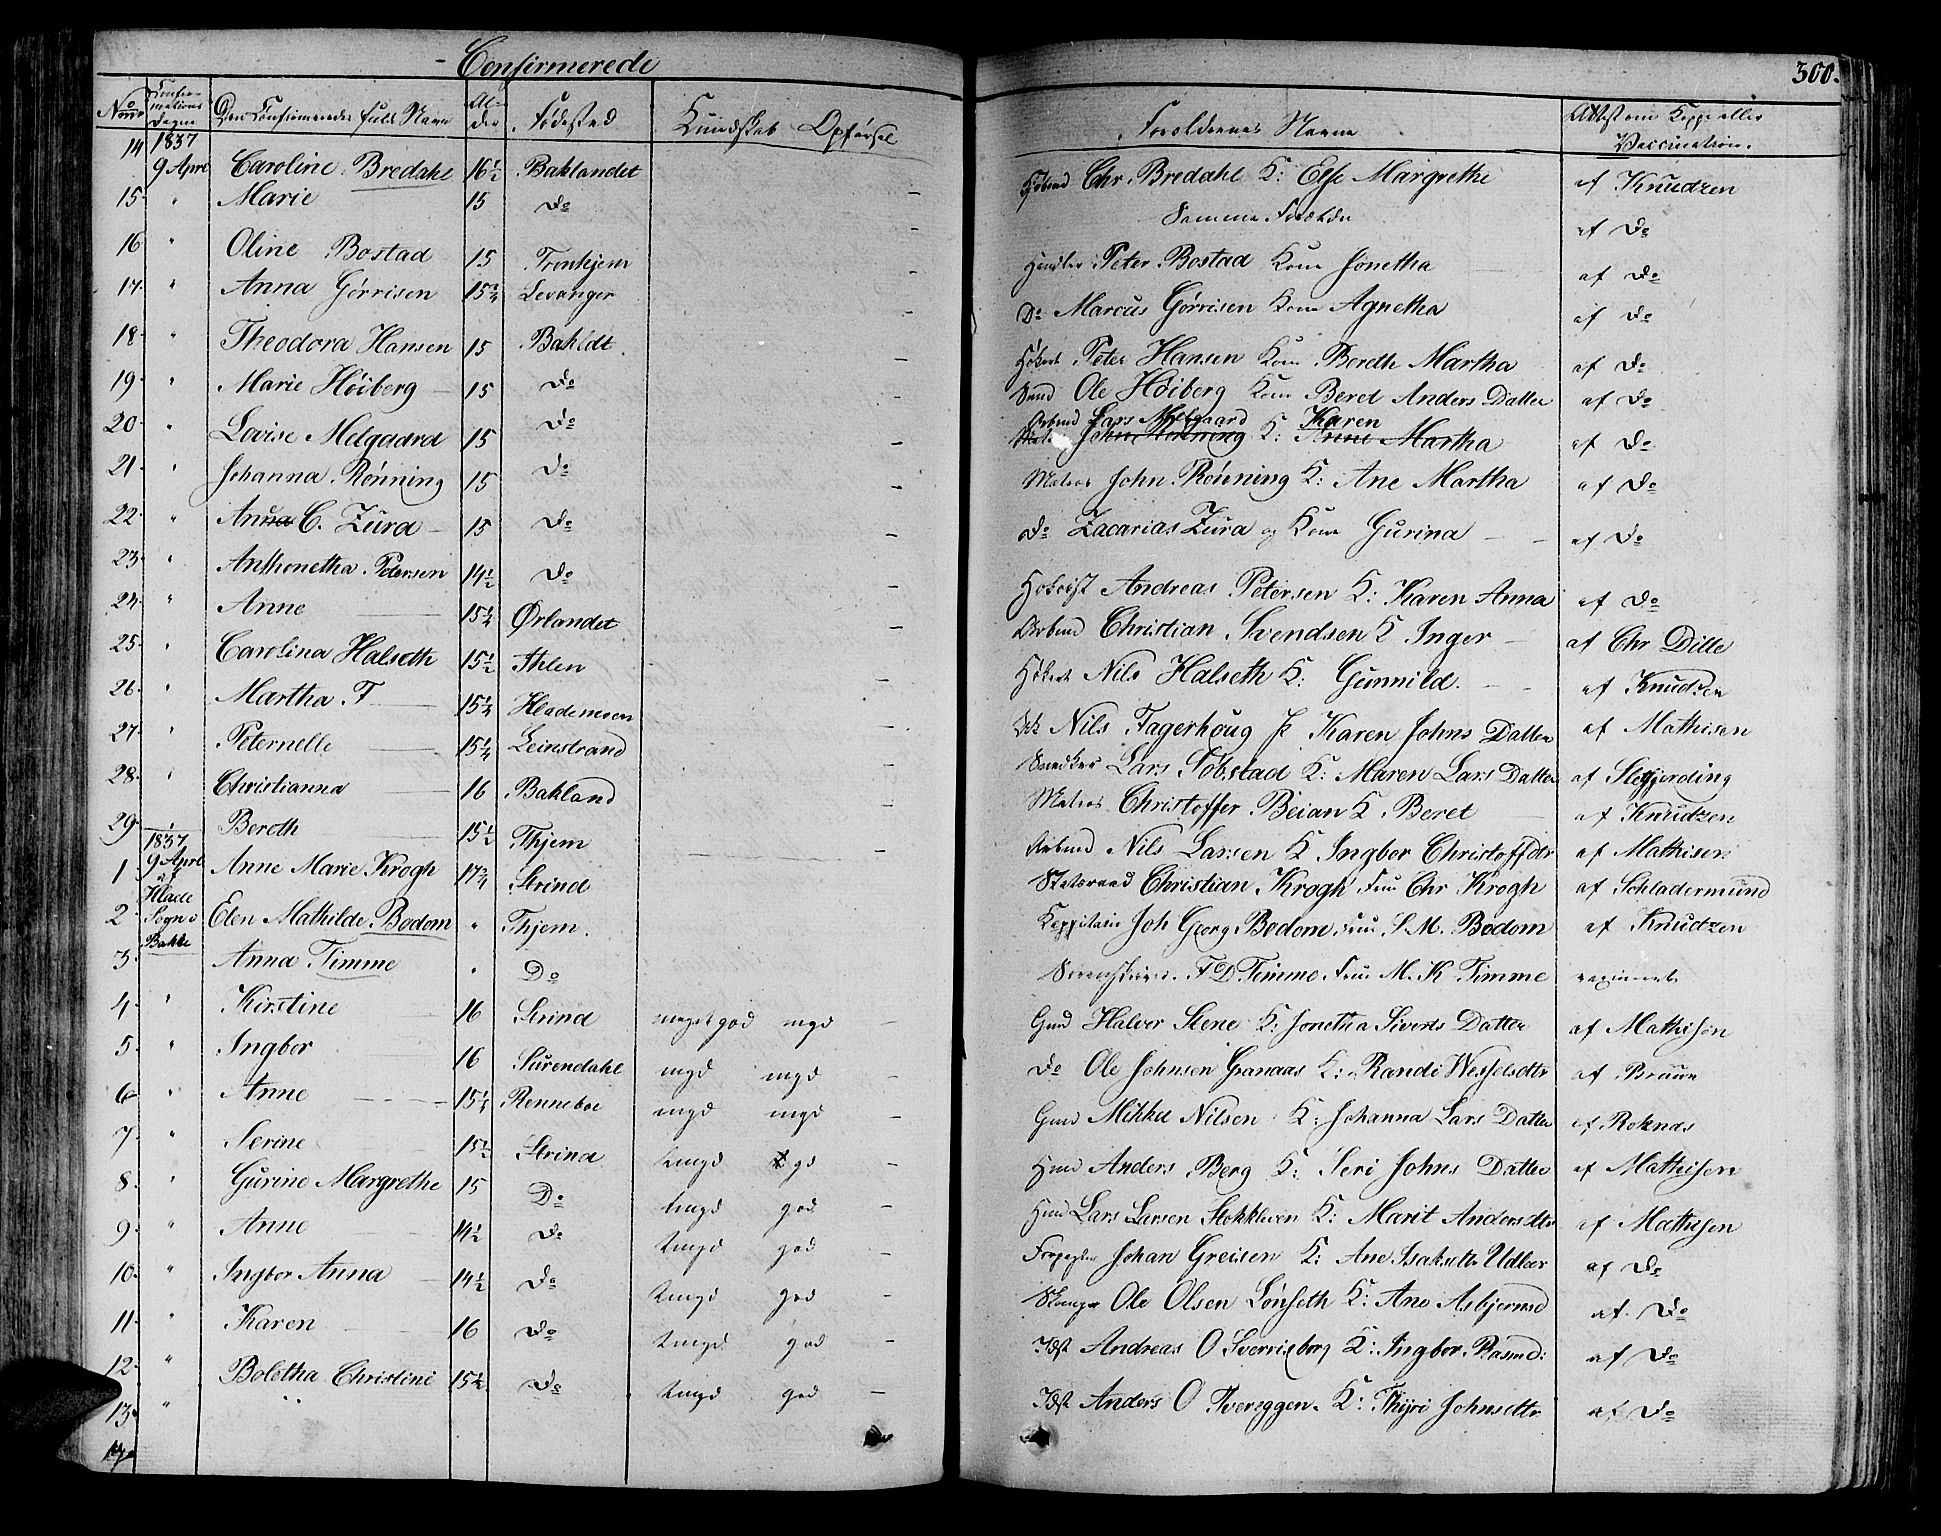 Confirmerede
300.
No Confirmations Dagen Den Confirmeredes fulde Navn Alder Fødested Kundskab Opførsel Forældrenes Navne Attest om Kopper eller Vaccination.
1837
14 9 Apri Caroline Bredahl 16½ Baklandet Chr. Bredahl K: Else Margrethe af Knudzen
15 " Marie 15 Do Samme Forældre af Do
16 " Oline Bostad 15 Tronhjem Handler Peter Bostad Kone Jonetha af Do
17 " Anna Gørrisen 15¾ Levanger Do Marcus Gørrisen Kone Agnetha af Do
18 " Theodora Hansen 15 Bakldt Peter Hansen Kone Bereth Martha af Do
19 " Marie Høiberg 15 Do Ole Høiberg Kone Beret Anders Datter af Do
20 " Lovise Melgaard 15 Do Arbmd Lars Melgaard Karen
John Rønning K: Anne Martha af Do
21 " Johanna Rønning 15 Do Matros John Rønning K: Ane Martha af Do
22 " Anna C. Zura 15 Do Do Zacarias Zura og Kone Gurina af Do
23 " Anthonetha Petersen 14½ Do Andreas Petersen K: Karen Anna af Do
24 " Anne 15¼ Ørlandet Arbmd Christian Svendsen K Inger af Chr Dille
25 " Carolina Halseth 15½ Ihlen Nils Halseth K: Gunnild. af Knudsen
26 " Martha F 15¼ Hlademoen Nils Fagerhoug K Karen Johns Datter af Mathisen
27 " Peternelle 15¼ Leinstrand Snedker Lars Søbstad K: Maren Lars Datter af Slegfjerding
28 " Christianna 16 Bakland Matros Christoffer Beian K. Beret af Knudzen
29 " Bereth 15½ Thjem Arbmd Nils Larsen K Ingbor Christoffdr af Mathisen
1837
1 9 Apri Anne Marie Krogh 17¾ Strind Statsraad Christian Krogh Fru Chr Krogh af Schladermund
af Hlade
2 Sogn i Elen Mathilde Bodom " Thjem. Joh Georg Bodom Fru S. M. Bodom af Knudzen
Bakke
3 Anna Timme " Do F D Timme Fru M. K Timme
4 " Kirstine 16 Strind meget god mgd Gmd Halvor Stene K: Jonetha Siverts Datter af Mathisen
5 " Ingbor 16 Surendahl mgd mgd Do Ole Johnsen Granaas K: Randi Wesselsdtr af Bruun
6 " Anne 15¼ Renneboe mgd mgd Gmd Mikkel Nilsen K: Johanna Lars Datter af Roknas
7 " Serine 15½ Strind gd Hmd Anders Berg K: Seri Johns Datter af Mathisen
8 " Gurine Margrethe 15 Do god Hmd Lars Larsen Stokkleven K: Marit Andersdtr af Mathisen
9 " Anne 14½ Do god Johan Greisen K: Ane Isaksdtr Udleer af Do
10 " Ingbor Anna 14½ Do god Ole Olsen Lønseth K: Ane Asbjørnsd af Do
11 " Karen 16 Do god Andreas O Sverresborg K: Ingbor Rasmd: af Do
12 " Boletha Christine 15½ Do god Anders O Tvereggen K: Thyri Johnsdtr af Do
13 "
14